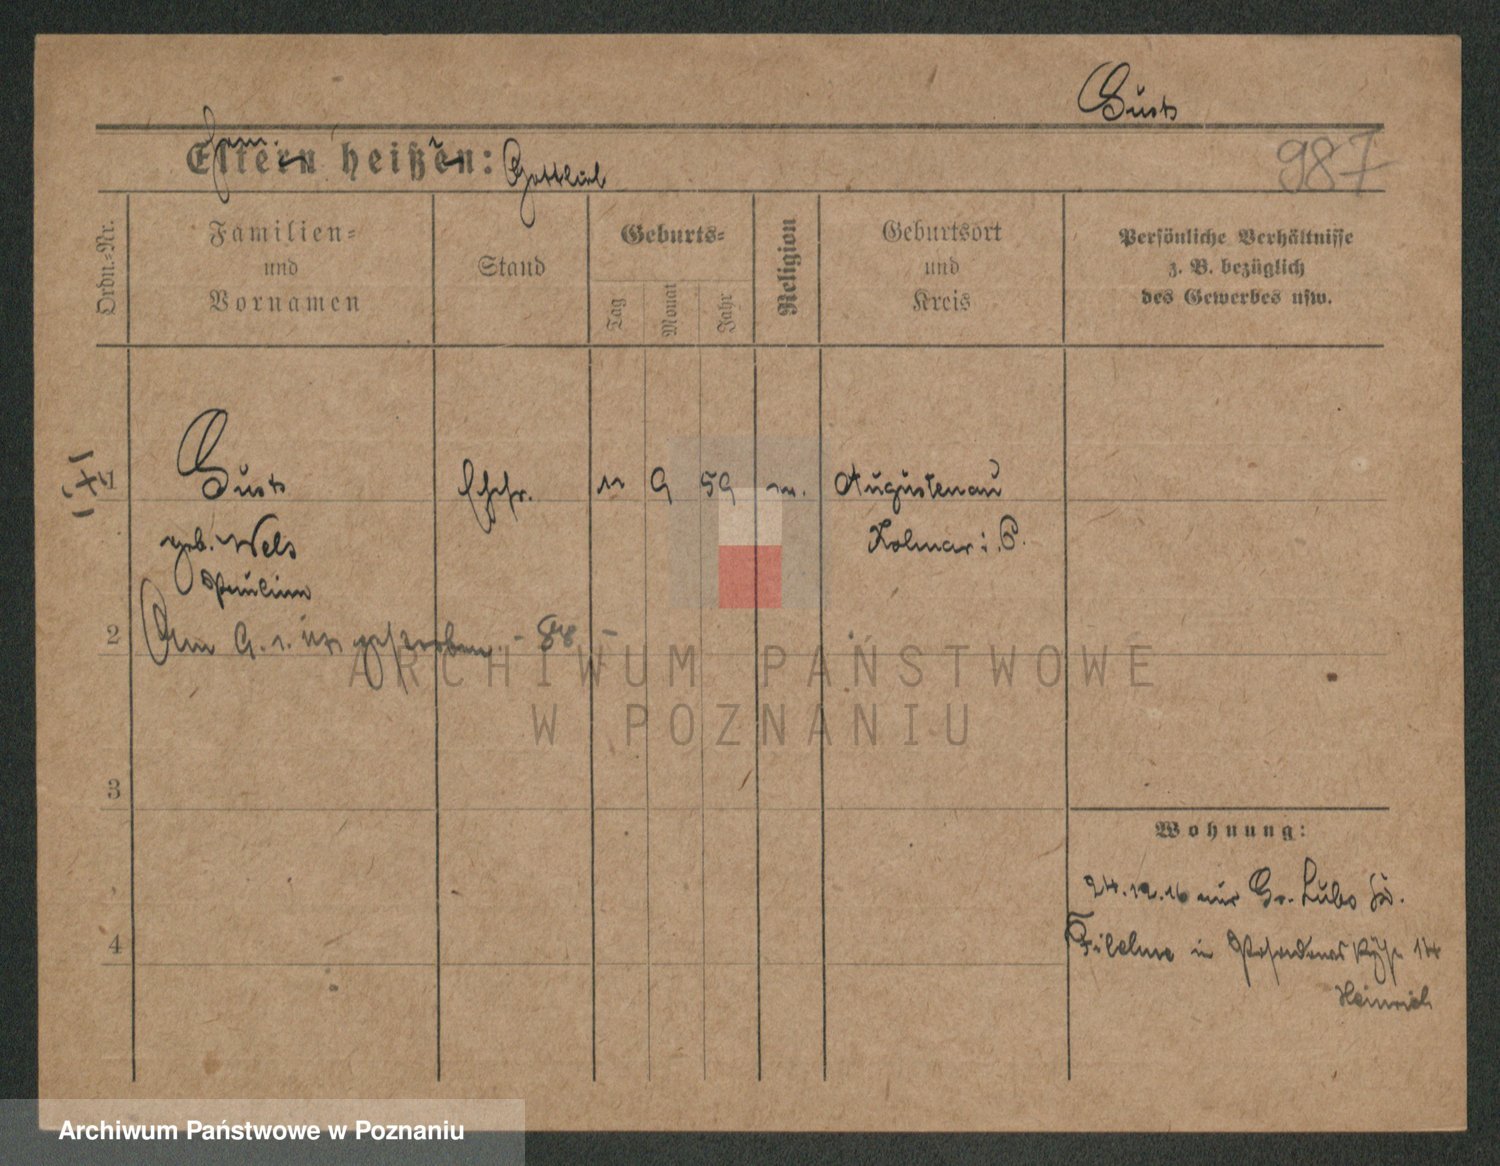 Gust
987
Eltern heißen: Gottlieb
Ordn.-Nr.
Familien-
und
Vornamen
Stand
Geburts-
Tag
Monat
Jahr
Religion
Geburtsort
und
Kreis
Persönliche Verhältnisse
z. B. bezüglich
des Gewerbes usw.
1
Gust
geb. Wels
Pauline
Ehefr.
11 9 59
Augustenau
Kolmar i. P.
2
Am 9. 1. gestorben
3
4
Wohnung:
24.12.16 Gr. Lubo
Filehne in 14
Heinrich
ARCHIWUM PAŃSTWOWE
W POZNANIU
Archiwum Państwowe w Poznaniu